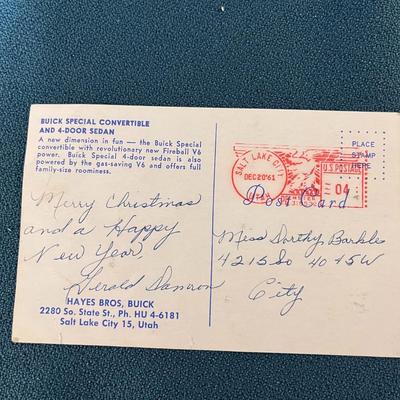 BUICK SPECIAL CONVERTIBLE
AND 4-DOOR SEDAN
A new dimension in fun — the Buick Special
convertible with revolutionary new Fireball V6
power. Buick Special 4-door sedan is also
powered by the gas-saving V6 and offers full
family-size roominess.
Merry Christmas
and a Happy
New Year,
Gerald
HAYES BROS, BUICK
2280 So. State St., Ph. HU 4-6181
Salt Lake City 15, Utah
PLACE
STAMP
HERE
SALT LAKE CITY
DEC 20'61
UTAH
U.S. POSTAGE
04
Post Card
Miss Dorthy Barkles
4215 So 4045W
City